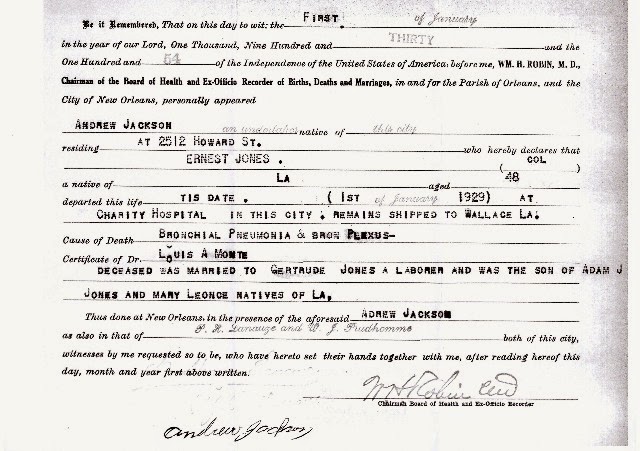 Be it Remembered, That on this day to wit: the FIRST. of January
in the year of our Lord, One Thousand, Nine Hundred and THIRTY and the
One Hundred and 54 of the Independence of the United States of America, before me, WM. H. ROBIN, M. D.,
Chairman of the Board of Health and Ex-Officio Recorder of Births, Deaths and Marriages, in and for the Parish of Orleans, and the
City of New Orleans, personally appeared
ANDREW JACKSON an undertaker native of this city
residing AT 2512 HOWARD ST. who hereby declares that
ERNEST JONES . ( COL )
a native of LA aged 48
departed this life TIS DATE . ( 1ST of January 1929) AT
CHARITY HOSPITAL IN THIS CITY . REMAINS SHIPPED TO WALLACE LA.
Cause of Death BRONCHIAL PNEUMONIA & BRON PLEXUS-
Certificate of Dr. LOUIS A MONTE
DECEASED WAS MARRIED TO GERTRUDE JONES A LABORER AND WAS THE SON OF ADAM J
JONES AND MARY LEONCE NATIVES OF LA.
Thus done at New Orleans, in the presence of the aforesaid ADREW JACKSON
as also in that of P. H. Lanauze and W. J. Prudhomme both of this city,
witnesses by me requested so to be, who have hereto set their hands together with me, after reading hereof this
day, month and year first above written.
WH Robin
Chairman Board of Health and Ex-Officio Recorder
Andrew Jackson